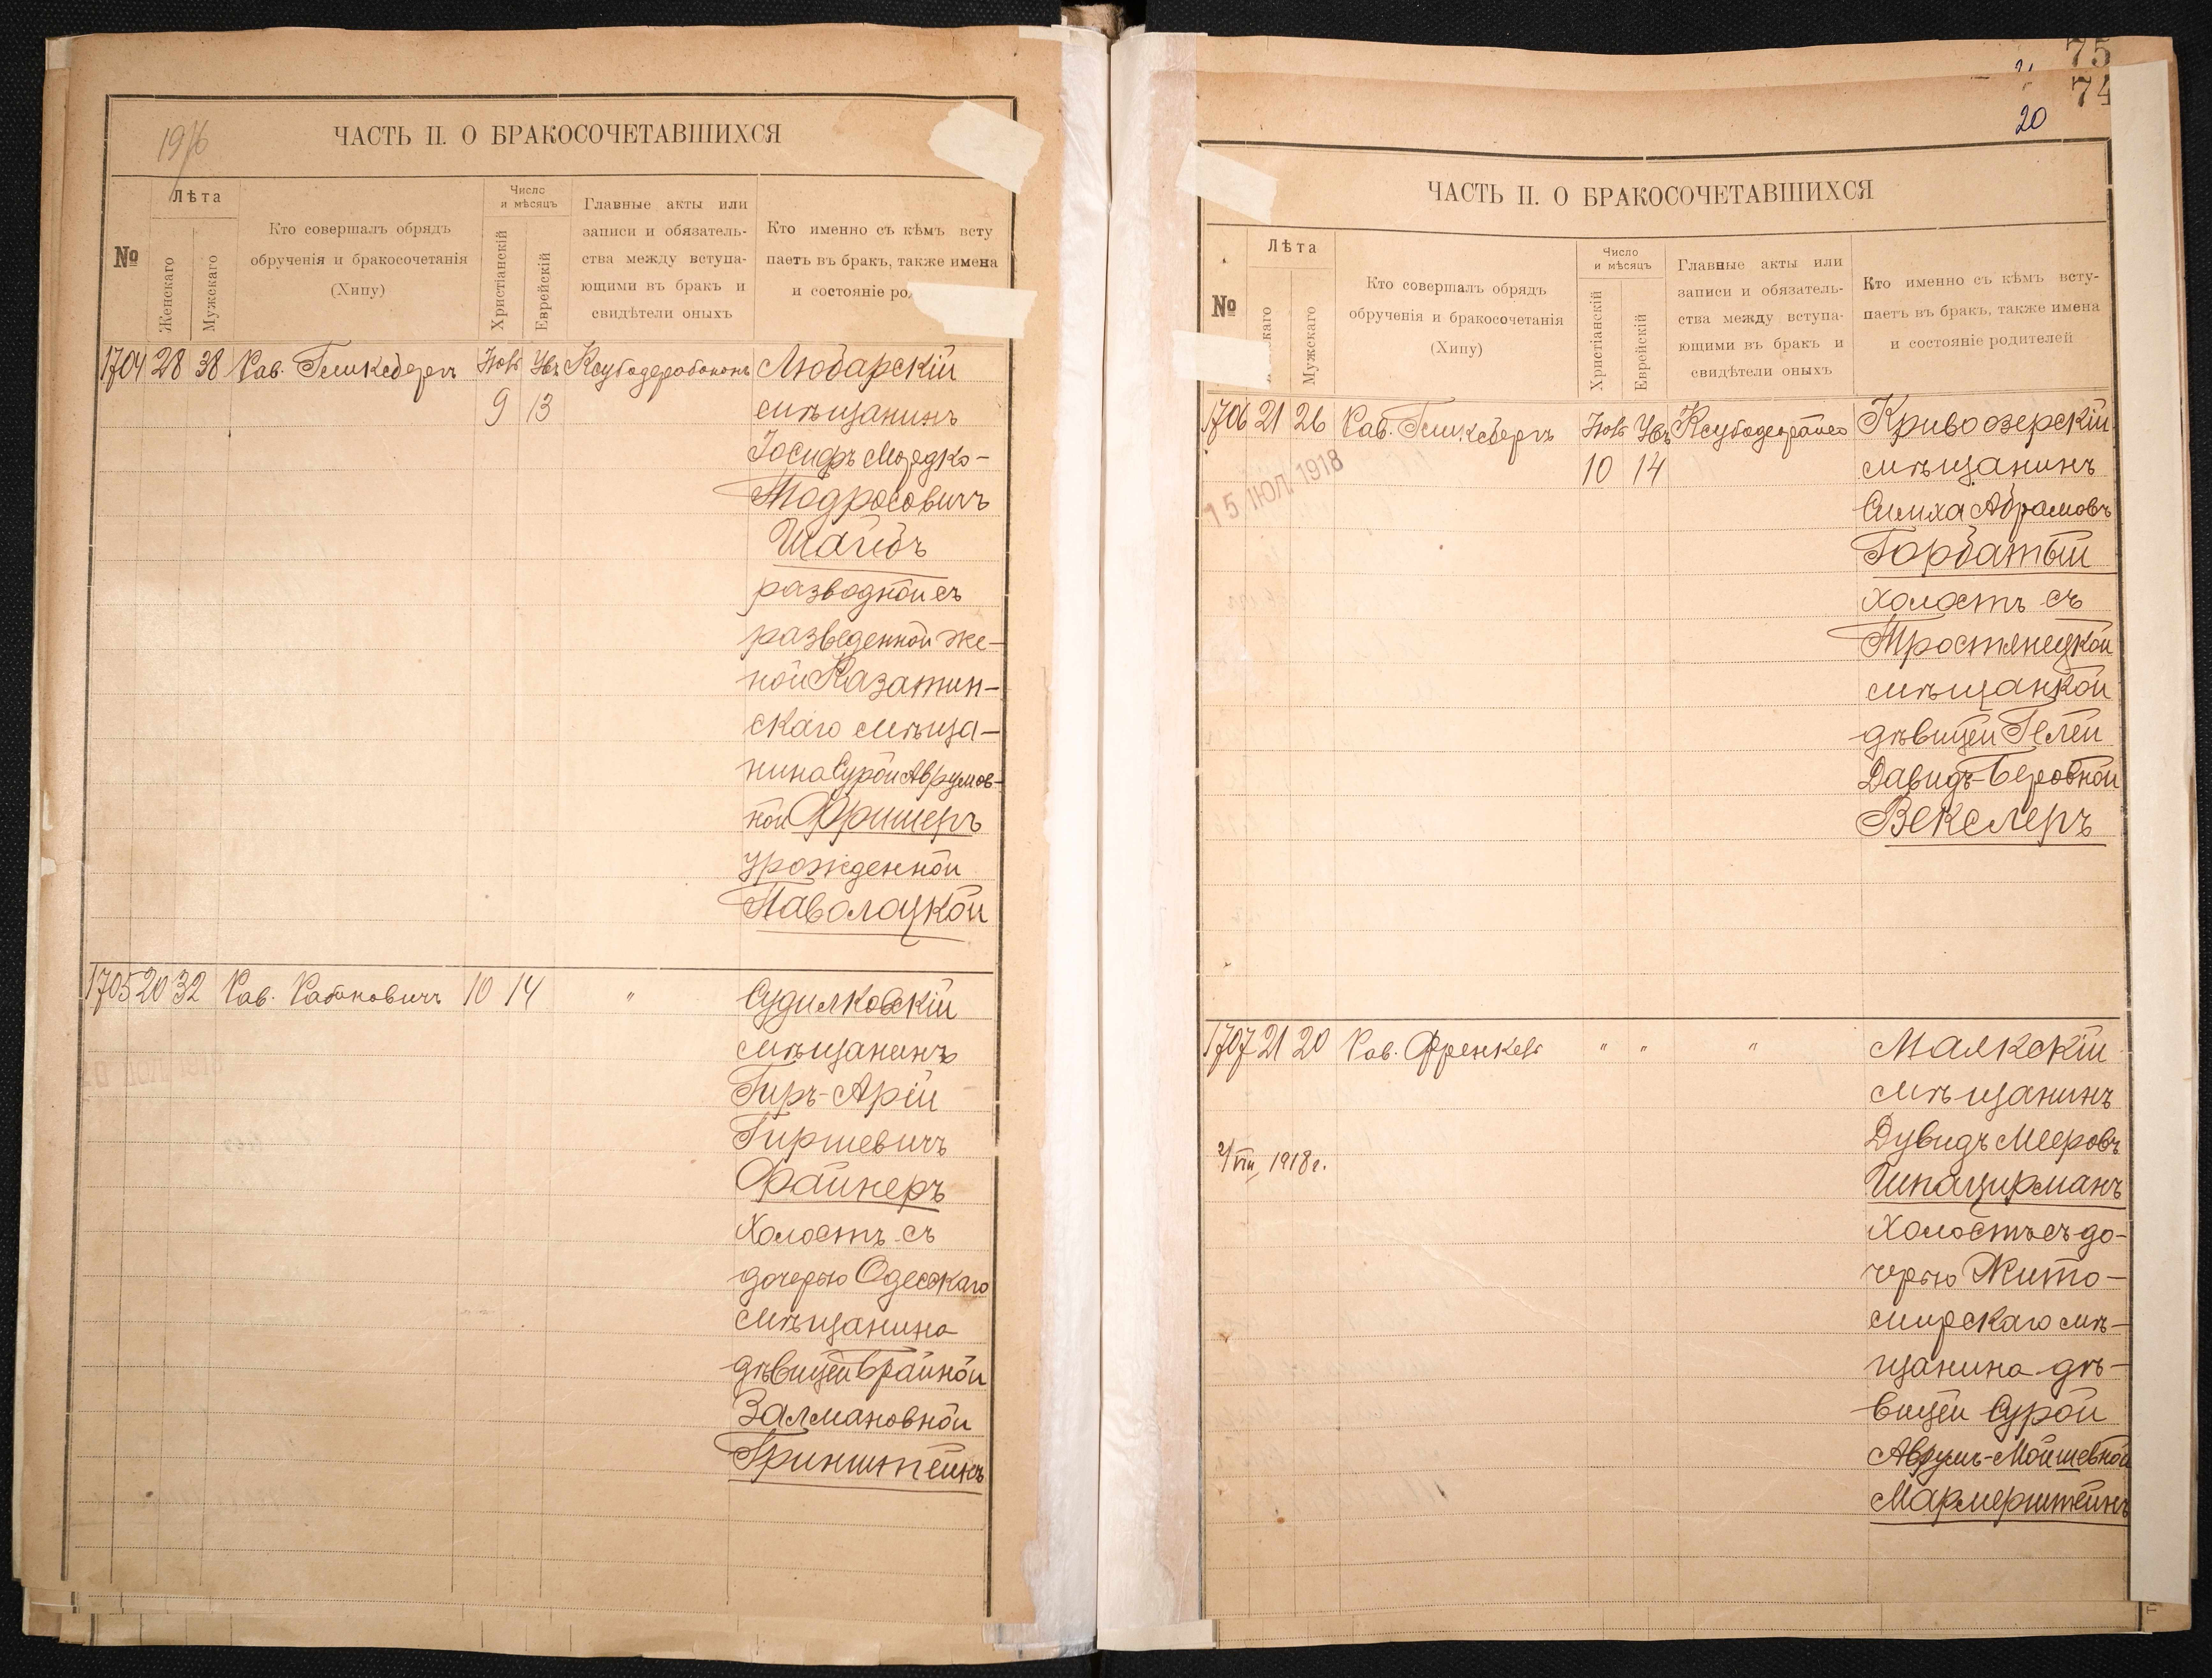 1916
ЧАСТЬ II. О БРАКОСОЧЕТАВШИХСЯ
№
Лѣта
Женскаго
Мужскаго
Кто совершалъ обрядъ
обрученія и бракосочетанія
(Хипу)
Число
и мѣсяцъ
Христіанскій
Еврейскій
Главные акты или
записи и обязатель-
ства между вступа-
ющими въ бракъ и
свидѣтели оныхъ
Кто именно съ кѣмъ всту
паетъ въ бракъ, также имена
и состояніе ро
1704 28 38 Рав. Гликсбергъ Нояб
9 13
Любарскій
мѣщанинъ
Іосифъ Мордко-
Тодросовичъ
Шагбъ
разводной съ
разведенной же-
ной Казатин-
скаго мѣща-
нина Сурой Аврумов-
ной Фришеръ
урожденной
Паволоцкой
1705 20 32 Рав. Рабиновичъ 10 14 "
Судилковскій
мѣщанинъ
Гиръ-Арій
Гиршевичъ
Файнеръ
холостъ съ
дочерью Одесскаго
мѣщанина
дѣвицей Брайной
Залмановной
Гринштейнъ
75
74
20
ЧАСТЬ II. О БРАКОСОЧЕТАВШИХСЯ
№
Лѣта
каго
Мужскаго
Кто совершалъ обрядъ
обрученія и бракосочетанія
(Хипу)
Число
и мѣсяцъ
Христіанскій
Еврейскій
Главные акты или
записи и обязатель-
ства между вступа-
ющими въ бракъ и
свидѣтели оныхъ
Кто именно съ кѣмъ всту-
паетъ въ бракъ, также имена
и состояніе родителей
1706 21 26 Рав. Гликсбергъ Нояб
10 14
15 ІЮЛ 1918
Кривоозерскій
мѣщанинъ
Симха Абрамовъ
Горбатый
холостъ съ
Тростянецкой
мѣщанкой
дѣвицей Гелей
Давидъ-Беровной
Векслеръ
1707 21 20 Рав. Френкель " " "
2/VIII 1918 г.
Маякскій
мѣщанинъ
Дувидъ Мееровъ
Шпацирманъ
холостъ съ до-
черью Жито-
мирскаго мѣ-
щанина дѣ-
вицей Сурой
Аврумъ-Мойшевной
Мармерштейнъ